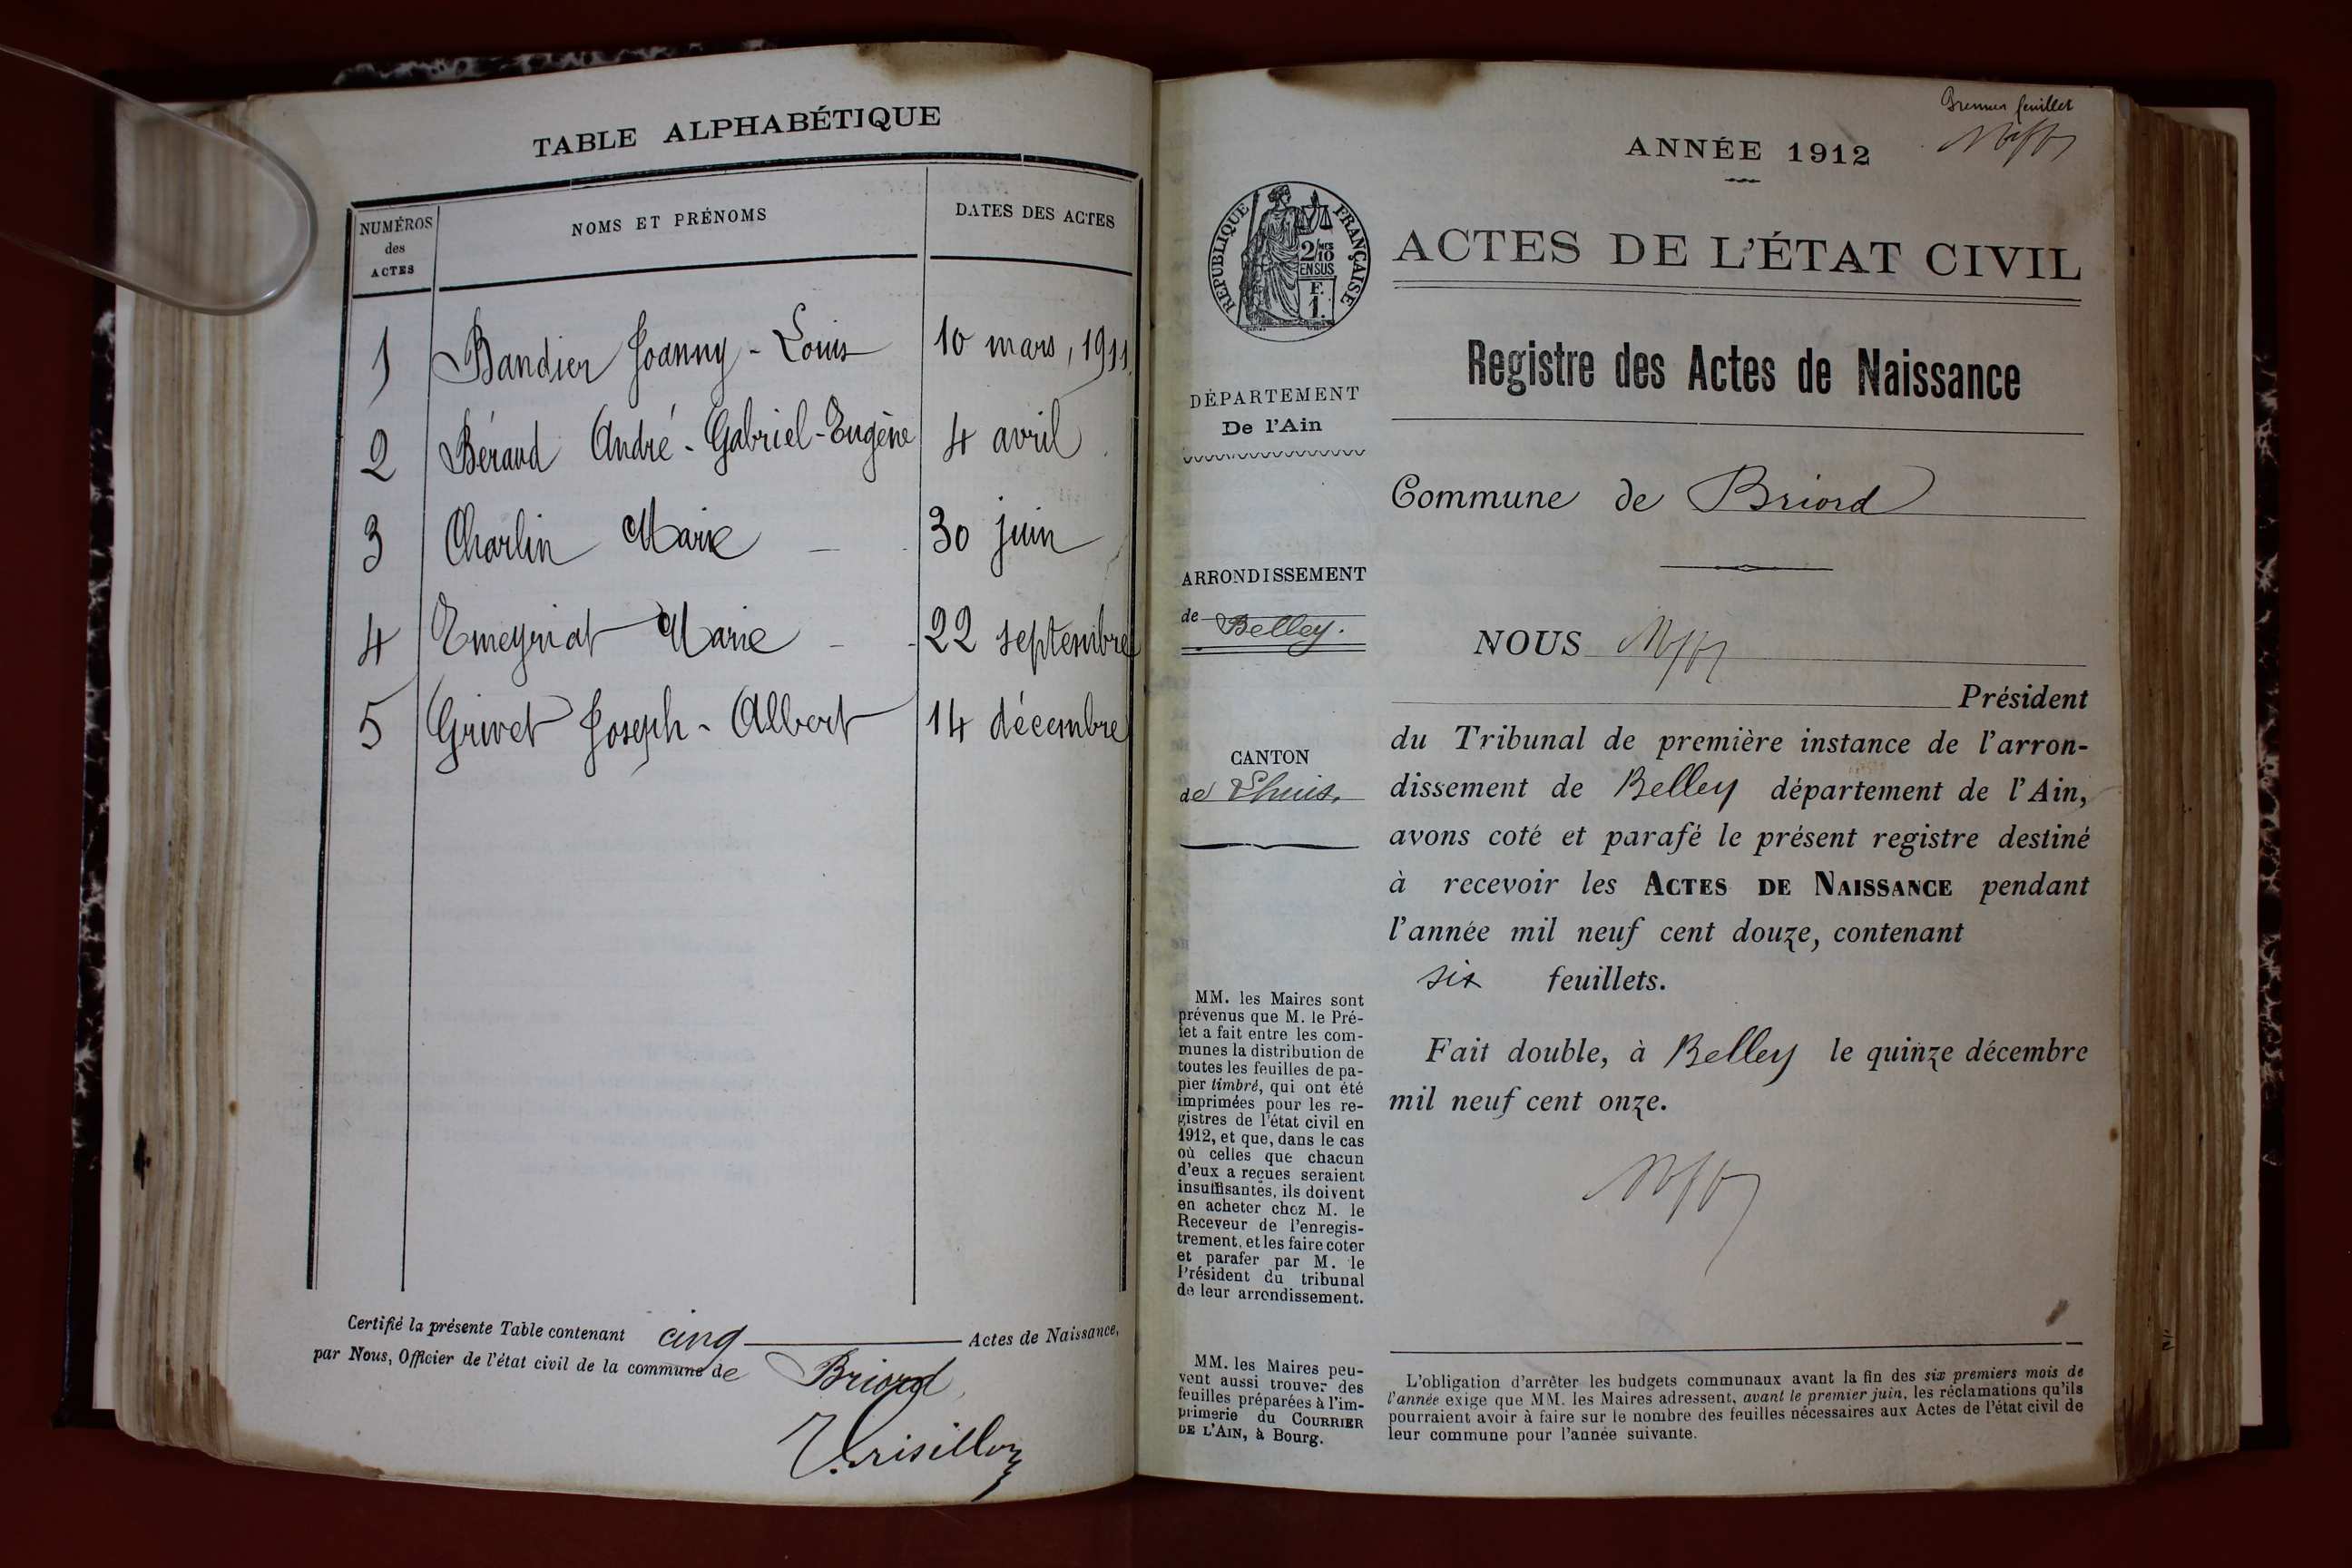 TABLE ALPHABÉTIQUE
NUMÉROS
des
ACTES
NOMS ET PRÉNOMS
DATES DES ACTES
1 Bandier Joanny - Louis 10 mars, 1911
2 Béraud André - Gabriel - Eugène 4 avril
3 Charlin Marie 30 juin
4 Emeyriat Marie 22 septembre
5 Grivet Joseph - Albert 14 décembre
Certifié la présente Table contenant cinq Actes de Naissance,
par Nous, Officier de l'état civil de la commune de Briord,
Premier feuillet
ANNÉE 1912
RÉPUBLIQUE FRANÇAISE
2/10
EN SUS
F.
1.
ACTES DE L'ÉTAT CIVIL
Registre des Actes de Naissance
DÉPARTEMENT
De l'Ain
Commune de Briord
ARRONDISSEMENT
de Belley.
NOUS
Président
CANTON
de Lhuis.
du Tribunal de première instance de l'arron-
dissement de Belley département de l'Ain,
avons coté et parafé le présent registre destiné
à recevoir les ACTES DE NAISSANCE pendant
l'année mil neuf cent douze, contenant
six feuillets.
Fait double, à Belley le quinze décembre
mil neuf cent onze.
MM. les Maires sont
prévenus que M. le Pré-
fet a fait entre les com-
munes la distribution de
toutes les feuilles de pa-
pier timbré, qui ont été
imprimées pour les re-
gistres de l'état civil en
1912, et que, dans le cas
où celles que chacun
d'eux a reçues seraient
insuffisantes, ils doivent
en acheter chez M. le
Receveur de l'enregis-
trement, et les faire coter
et parafer par M. le
Président du tribunal
de leur arrondissement.
MM. les Maires peu-
vent aussi trouver des
feuilles préparées à l'im-
primerie du COURRIER
DE L'AIN, à Bourg.
L'obligation d'arrêter les budgets communaux avant la fin des six premiers mois de
l'année exige que MM. les Maires adressent, avant le premier juin, les réclamations qu'ils
pourraient avoir à faire sur le nombre des feuilles nécessaires aux Actes de l'état civil de
leur commune pour l'année suivante.